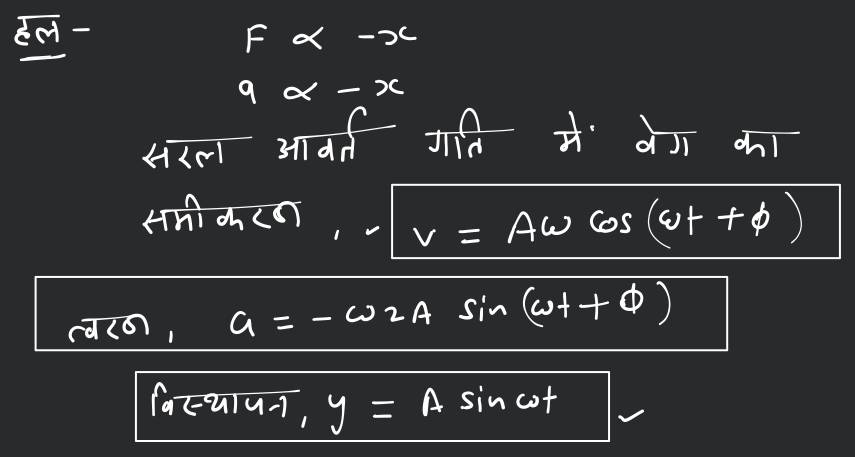 हल -
F ∝ -x
a ∝ -x
सरल आवर्त गति में वेग का
समीकरण, v = Aω cos (ωt + ϕ)
त्वरण, a = - ω2A sin (ωt + ϕ)
विस्थापन, y = A sin ωt